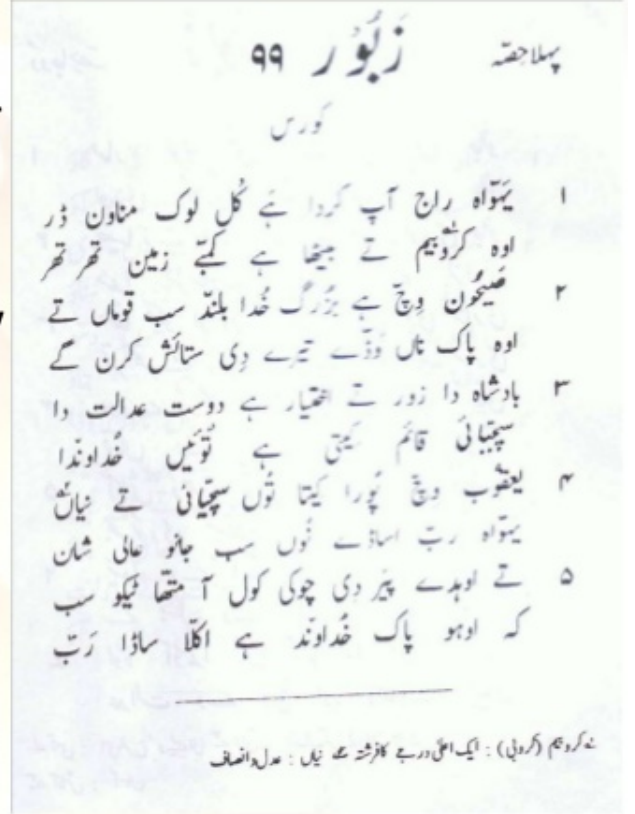 پہلا حِصّہ زبُور ۹۹
کورس
۱ یہَوّاہ راج آپ کردا ہَے کُل لوک مناون ڈر
اوہ کرُوبیم تے بیٹھا ہے کمبّے زمین تھر تھر
۲ صَیحُون وِچّ ہے بزُرگ خُدا بلند سب قوماں تے
اوہ پاک ناں وَڈّے تیرے دِی ستائش کرن گے
۳ بادشاہ دا زور تے اختیار ہے دوست عدالت دا
سچّیائی قائم کیتی ہے تُوئیں خُداوندا
۴ یعقُوب وِچّ پُورا کیتا تُوں سچّیائی تے نیاں
یہوّاہ ربّ اساڈے نُوں سب جانو عالی شان
۵ تے اوہدے پَیر دِی چوکی کول آ متّھا ٹیکو سب
کہ اوہو پاک خُداوند ہے اکلّا ساڈا رَبّ
کروبیم (کروبی) : ایک اعلیٰ درجے کا فرشتہ نیاں : عدل و انصاف